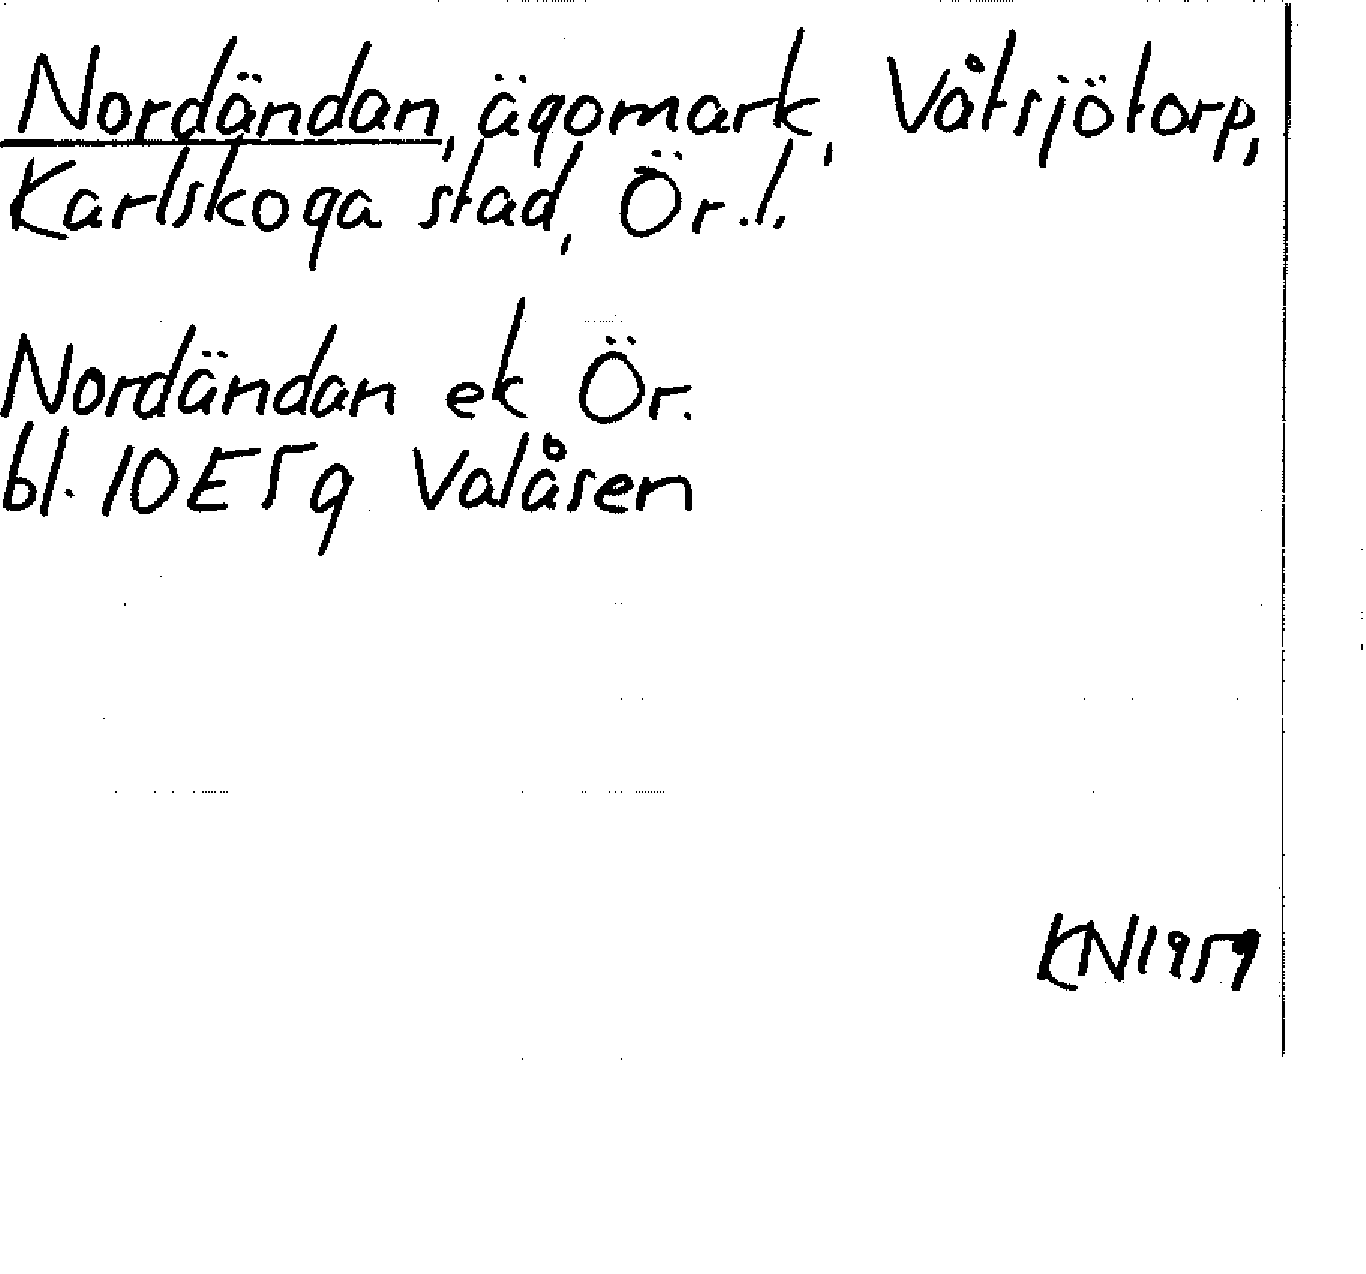 Nordändan, ägomark, Våtsjötorp,
Karlskoga stad, Ör.l.
Nordändan ek Ör.
bl. 10E5g Valåsen
KN1959